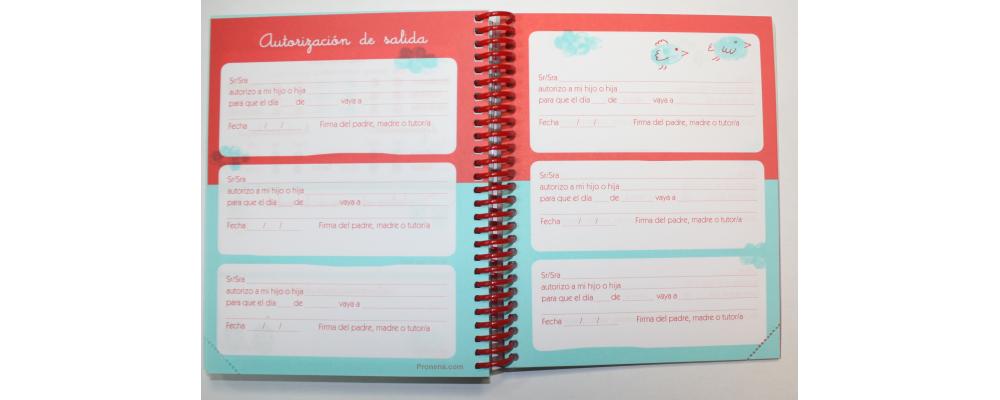 Autorización de salida
Sr/Sra
autorizo a mi hijo o hija
para que el día ___ de ___ vaya a
Fecha ___/___/___ Firma del padre, madre o tutor/a
Sr/Sra
autorizo a mi hijo o hija
para que el día ___ de ___ vaya a
Fecha ___/___/___ Firma del padre, madre o tutor/a
Sr/Sra
autorizo a mi hijo o hija
para que el día ___ de ___ vaya a
Fecha ___/___/___ Firma del padre, madre o tutor/a
Pronens.com
Sr/Sra
autorizo a mi hijo o hija
para que el día ___ de ___ vaya a
Fecha ___/___/___ Firma del padre, madre o tutor/a
Sr/Sra
autorizo a mi hijo o hija
para que el día ___ de ___ vaya a
Fecha ___/___/___ Firma del padre, madre o tutor/a
Sr/Sra
autorizo a mi hijo o hija
para que el día ___ de ___ vaya a
Fecha ___/___/___ Firma del padre, madre o tutor/a